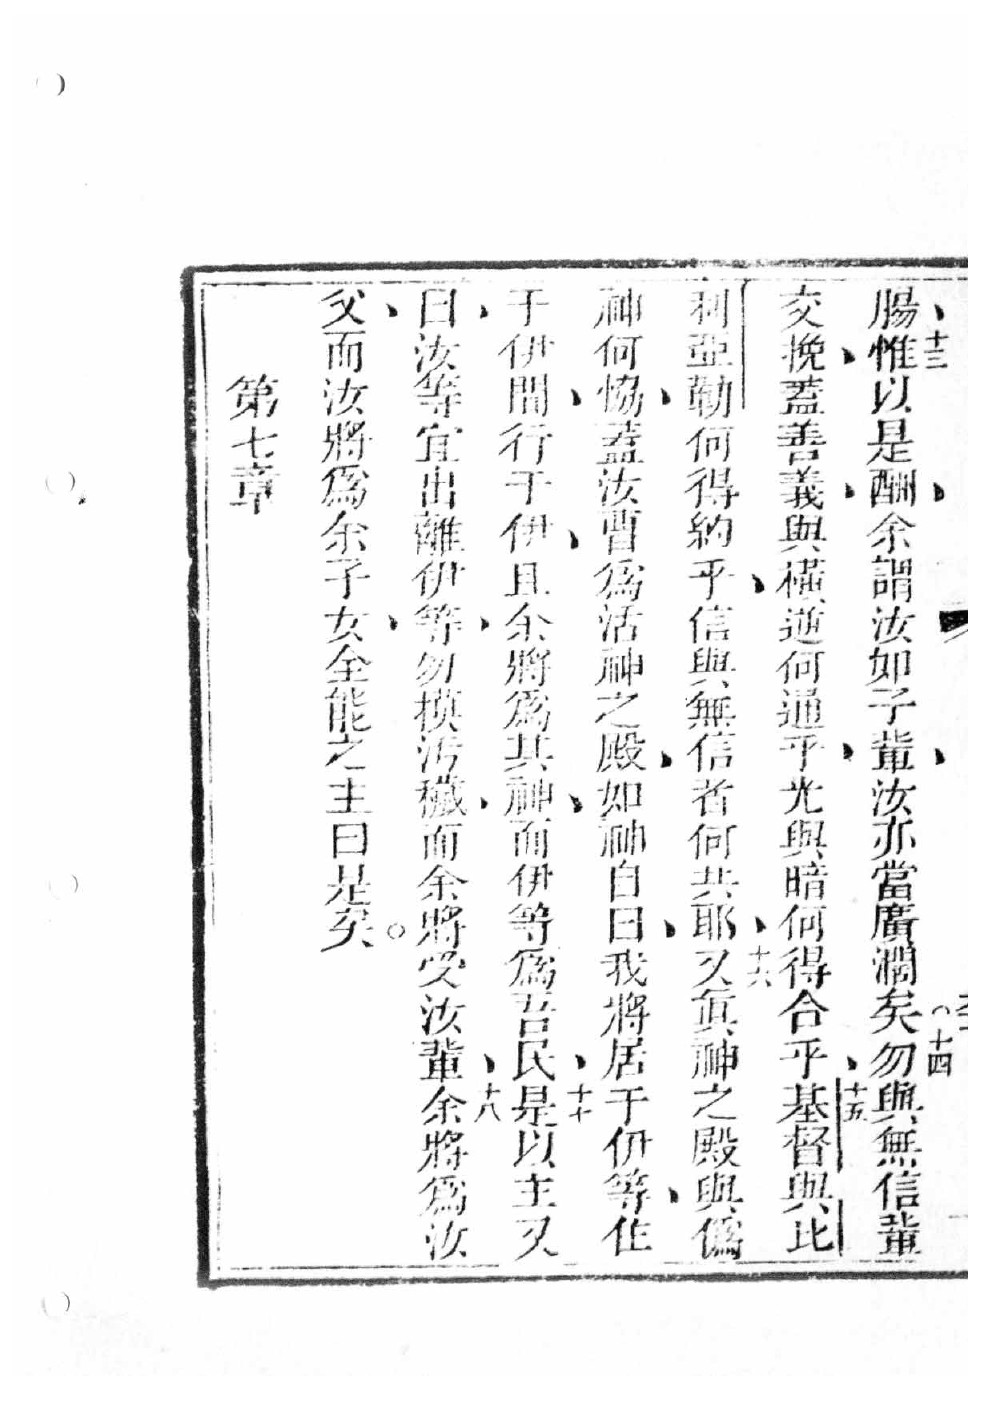 腸、十三惟以是酬、余謂汝如子輩、汝亦當廣濶矣。十四勿與無信輩
交挽、蓋善義、與橫逆何通乎、光與暗何得合乎、十五基督與比
利亞勒何得約乎、信與無信者何共耶、十六又眞神之殿與僞
神何恊、蓋汝曹爲活神之殿、如神自曰、我將居于伊等、住
于伊間、行于伊、且余將爲其神、而伊等爲吾民、十七是以主又
曰、汝等宜出離伊等、勿摸汚穢、而余將受汝輩、十八余將爲汝
父、而汝將爲余子女、全能之主曰是矣。
第七章